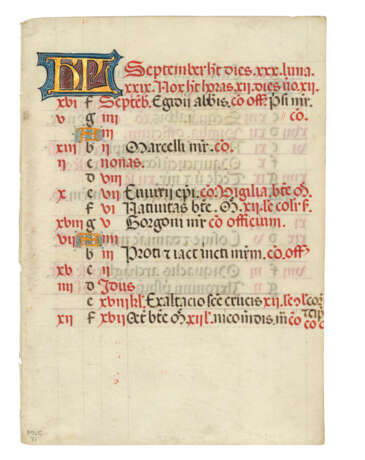 KL September ht dies .xxx. luna.
xxix. Nox ht horas .xii. dies uo .xii.
xvi f Septeb. Egidii abbis. co off. Psi mr.
v g iiii co.
A iii
xiii b ii Marcelli mr. co.
ii c nonas.
d viii
x e vii Euurtii epi. co. Vigilia. bte M.
f vi Natiuitas bte. M. xii. le
xviii g v Gorgoni mr co officium.
vii A iiii
b iii Proti et iacincti mrm. co. off
xv c ii
iiii d Idus
e xviii kl. Exaltacio sce crucis xii. le
xii f xvii Oct bte M xii l. nicomdis. m co